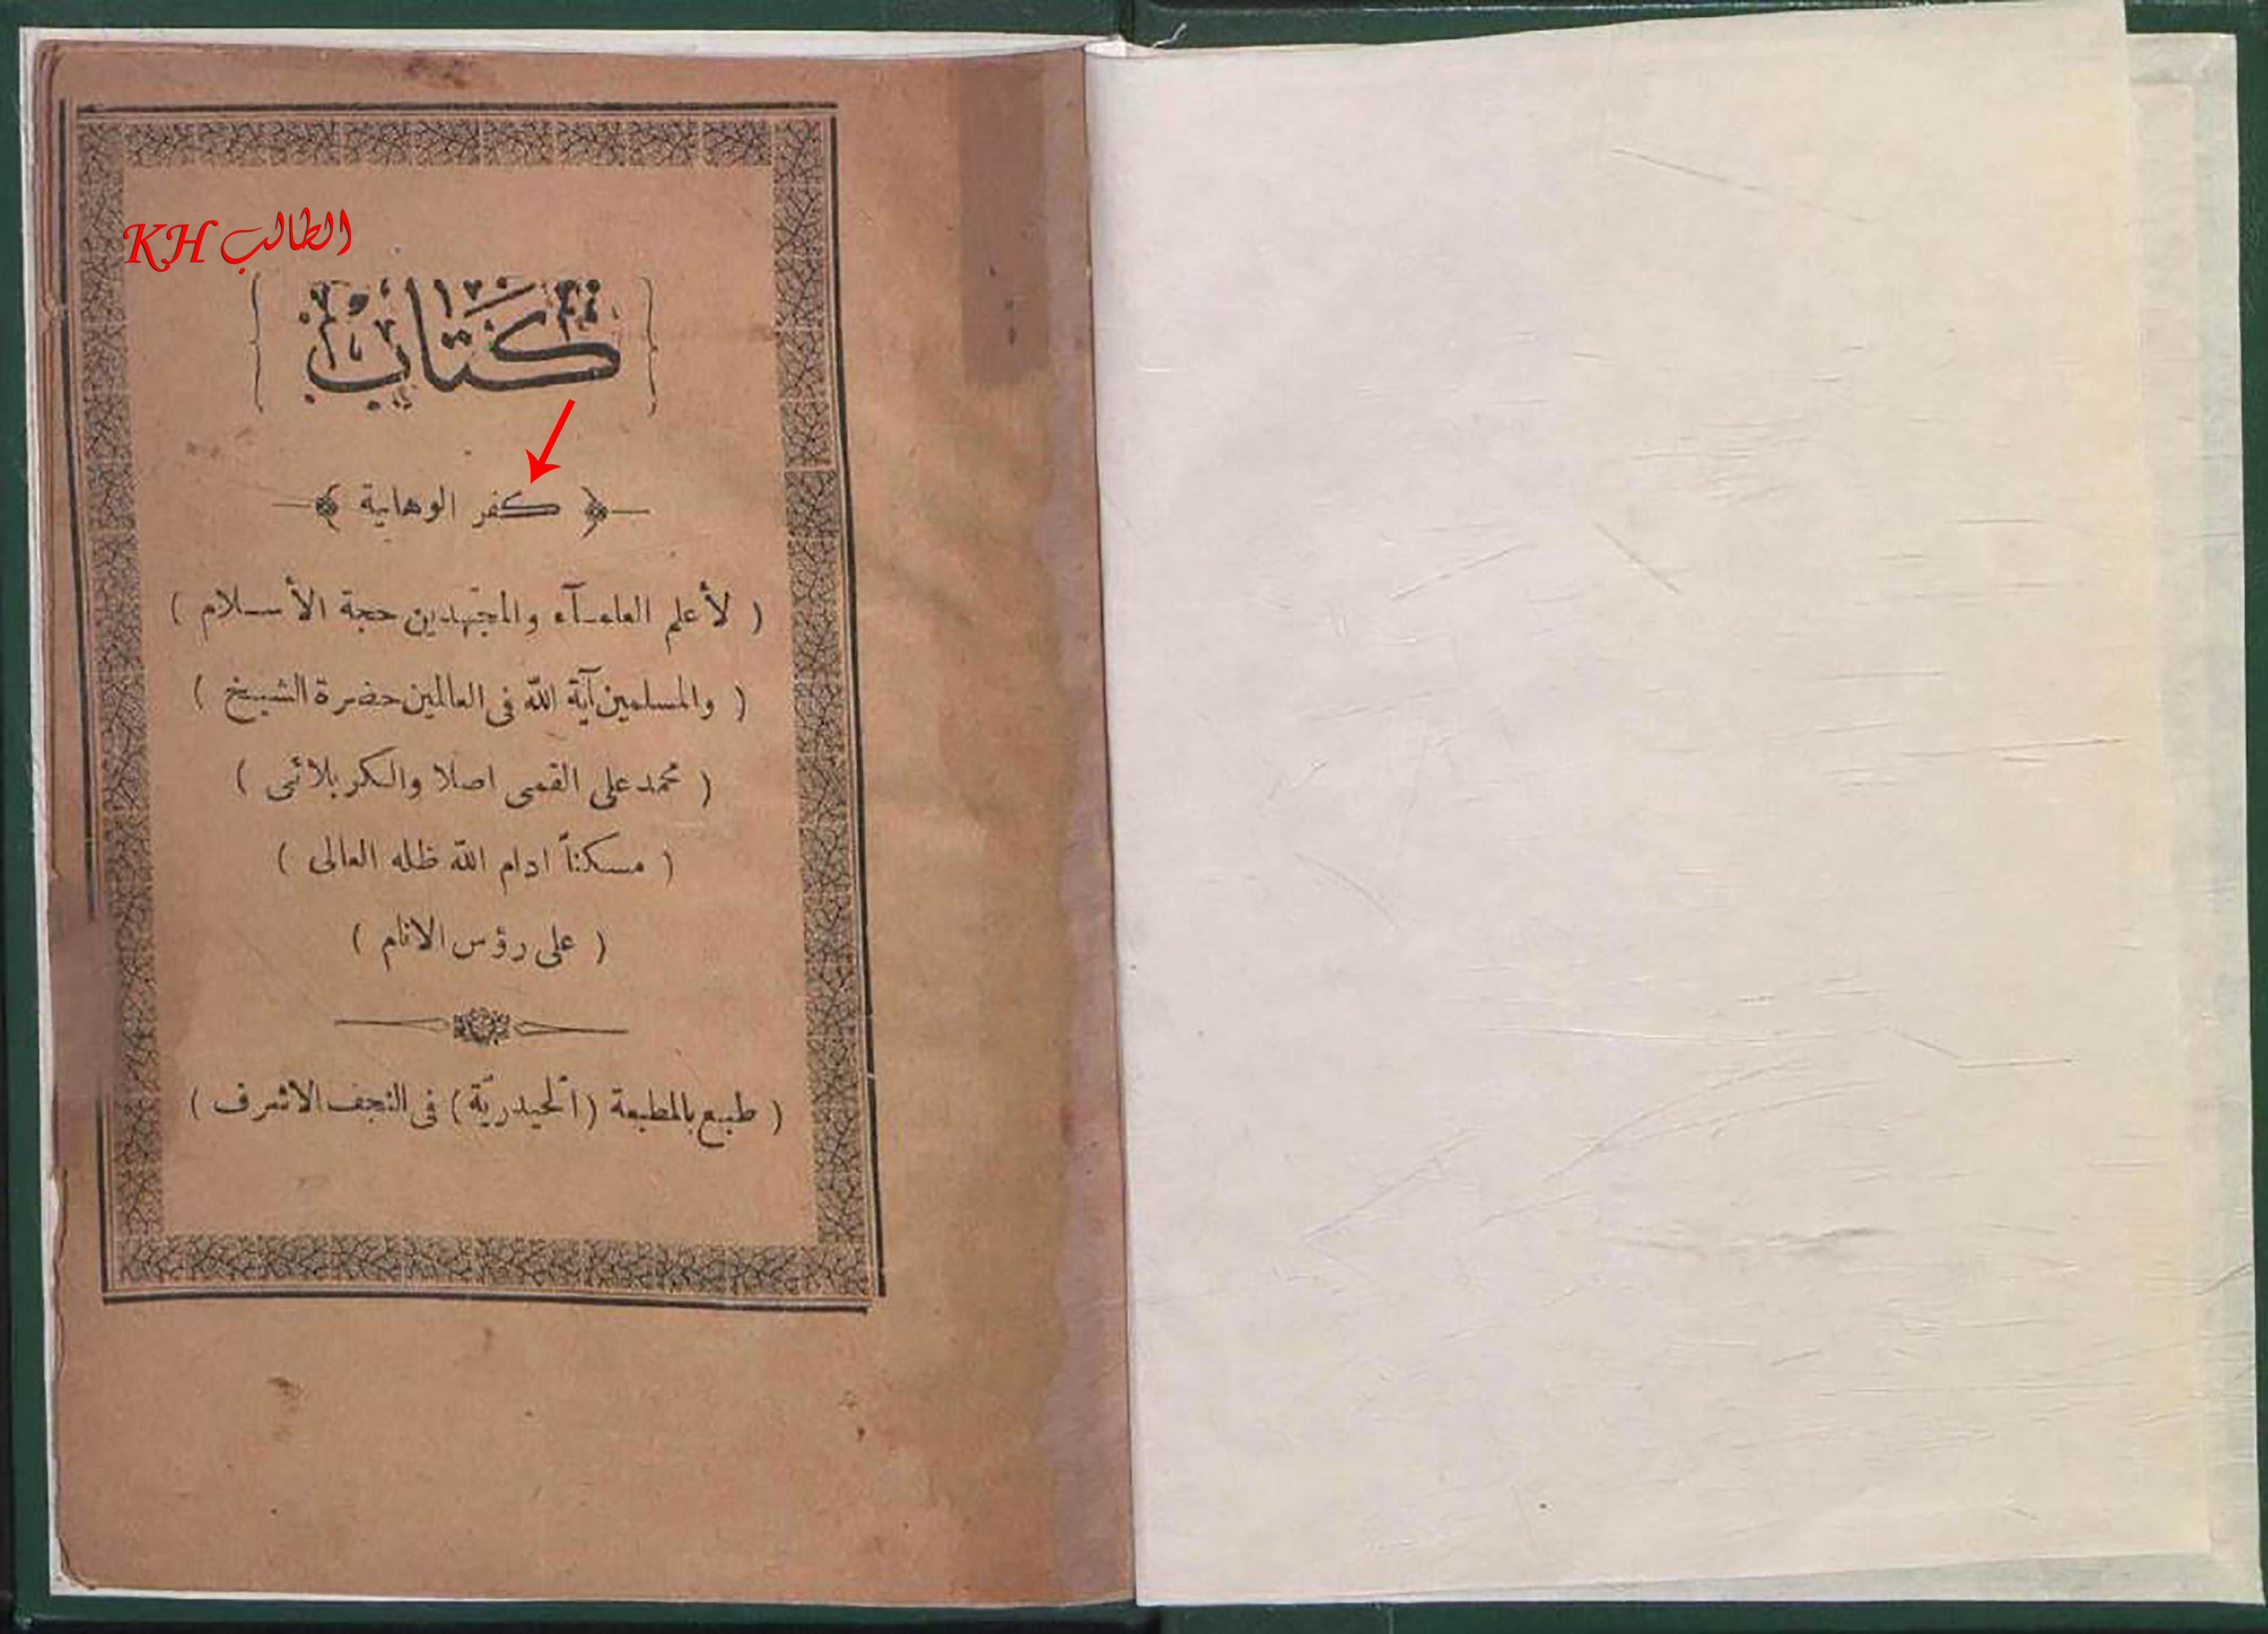 الطالب KH
كتاب
كفر الوهابية
( لأعلم العلمـآء والمجتهدين حجة الأسـلام )
( والمسلمين آية الله فى العالمين حضرة الشيخ )
( محمد على القمى اصلا والكربلائى )
( مسكناً ادام الله ظله العالى )
( على رؤس الانام )
( طبع بالمطبعة (الحيدريّة) فى النجف الاشرف )